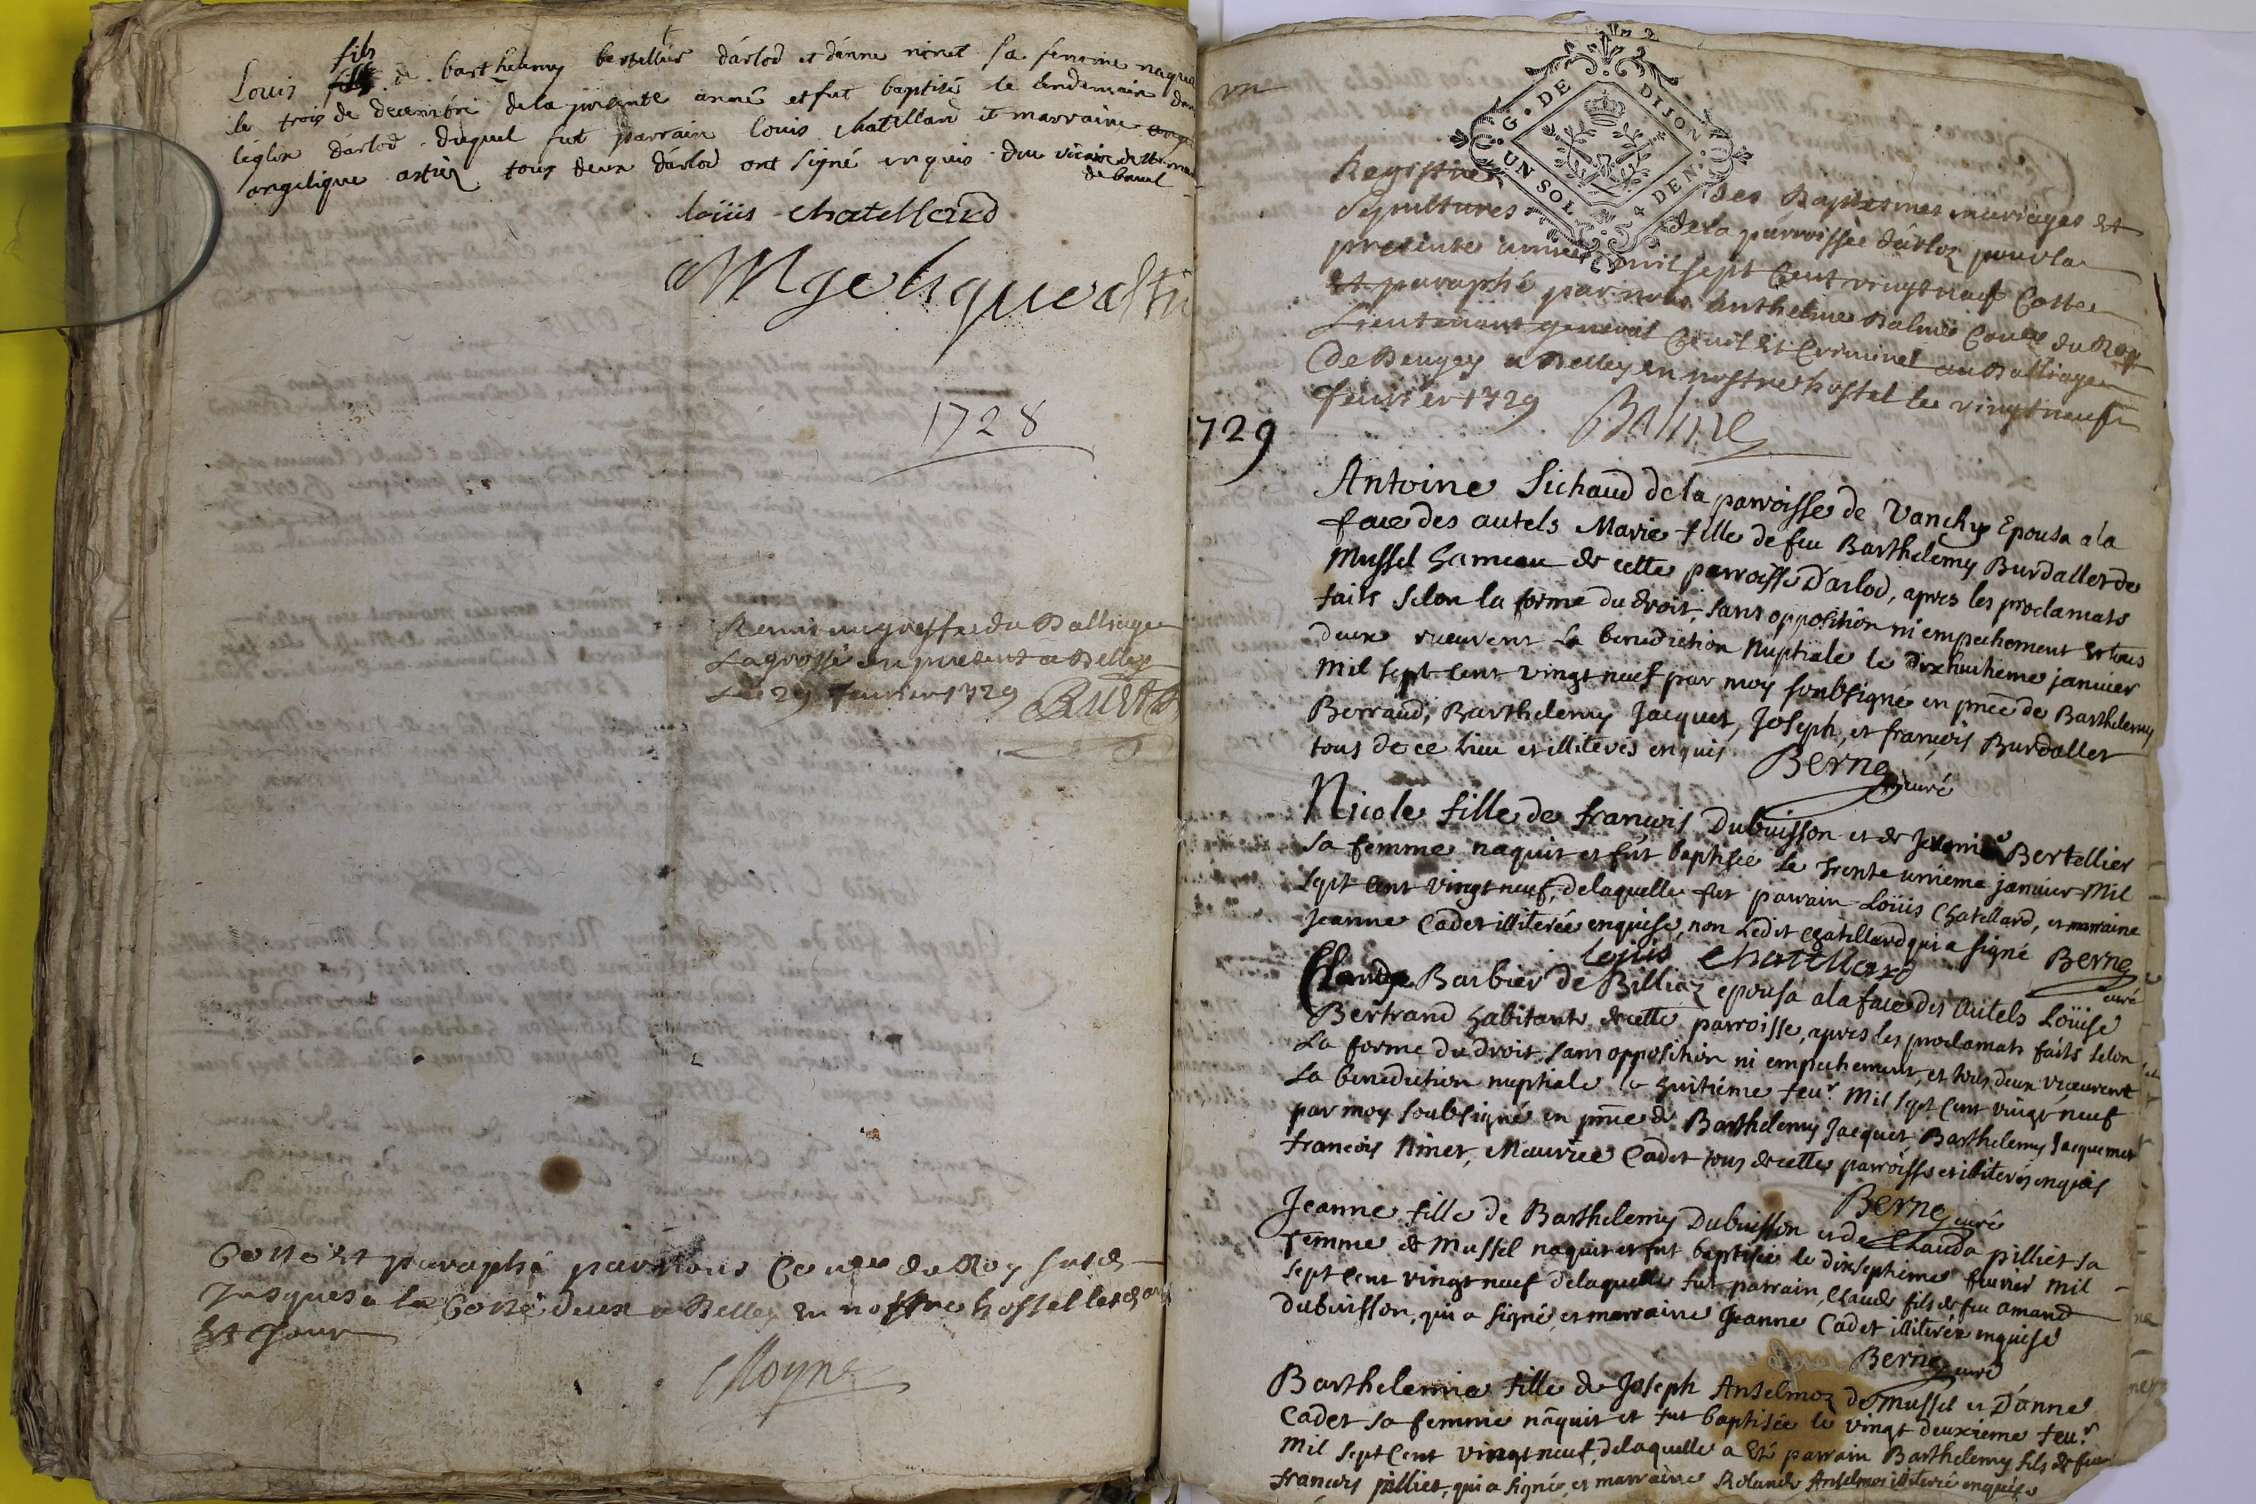 Louis fils de barthelemy bertellier d'arlod et d'anne ninet sa femme naquit
le trois de decembre de la presente année et fut baptisé le lendemain dans
leglise d'arlod duquel fut parrain louis chatellard et marraine
angelique artiez tous deux d'arlod ont signé enquis
louis chatellard
Angelique arti
1728
Remis au greffe du Balliage
La grosse du present a Belley
Le 29 fevrier 1729
Cotté et paraphé par nous Con.er du Roy susd.
Jusques a la Cotte deux a Belley en nostre hostel lesd. an
Et Jour
Moyne
un
G. DE DIJON
UN SOL 4 DEN.
Registre des Baptesmes mariages et
Sepultures de la parroisse d'arloz pour la
presente année mil sept Cent vingt neuf Cotté
Et paraphé par nous Anthelme Balme Con.er du Roy
Lieutenant general Civil et Criminel au Balliage
De Beugey a Belley en nostre hostel le vingt neuf
fevrier 1729 Balme
1729
Antoine Sichaud de la parroisse de Vanchy Epousa a la
face des autels Marie fille de feu Barthelemy Burdallet de
Mussel hameau de cette parroisse D'arlod, apres les proclamats
faits selon la forme du droit, sans opposition ni empechement et tous
deux receurent la benediction Nuptiale le dixhuitieme janvier
Mil sept cent vingt neuf par moy soubsigné en pñce de Barthelemy
Berraud, Barthelemy Jacquet, Joseph, et françois Burdallet
tous de ce lieu et illiterés enquis Berne curé
Nicole fille de françois Dubuisson et de Bertellier
sa femme naquit et fut baptisée le trente unieme janvier Mil
sept cent vingt neuf, de laquelle fut parrain Loüis Chatellard, et marraine
Jeanne Cadet illiterée enquise, non Ledit Chatellard qui a signé Berne
curé
loüis chatellard
Claude Barbier de Billiaz epousa a la face des Autels Loüise
Bertrand habitante de cette parroisse, apres les proclamats faits selon
La forme du droit, sans opposition ni empechement, et tous deux receurent
La benediction nuptiale le huitieme feu.r Mil sept cent vingt neuf
par moy soubsigné en pñce de Barthelemy Jacquet, Barthelemy Jacquemet
françois Ninet, Maurice Cadet tous de cette parroisse et illiterés enquis
Berne curé
Jeanne fille de Barthelemy Dubuisson et de Clauda pilliet sa
femme de Mussel naquit et fut baptisée le dixseptieme feuvrier mil
sept cent vingt neuf de laquelle fut parrain, Claude fils de feu amand
dubuisson, qui a signé, et marraine Jeanne Cadet illiterée enquise
Berne curé
Barthelemie fille de Joseph Anselmoz de Mussel et D'anne
Cadet sa femme naquit et fut baptisée le vingt deuxieme feu.r
Mil sept Cent vingt neuf, de laquelle a Eté parrain Barthelemy fils de feu
françois pilliet, qui a signé, et marraine Rolande Anselmoz illiterée enquise